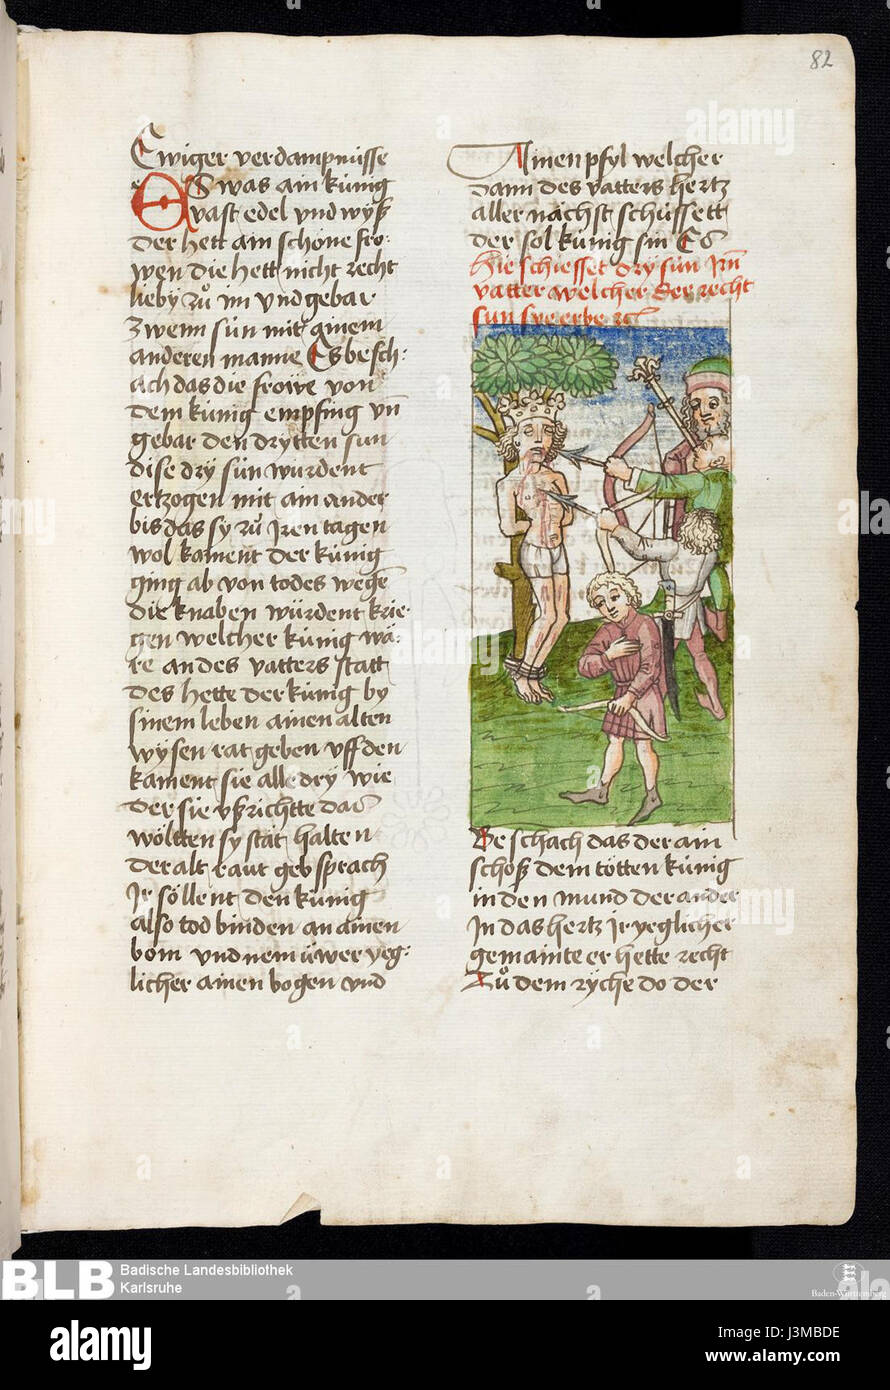 82
Ewiger verdampnusse
ES was ain kúnig
vast edel und wyß
der hett ain schöne fro-
wen die hett nicht recht
lieby zů im und gebar
zwenn sún mit ainem
anderen manne Es besch-
ach das die frowe von
dem kúnig empfing vn̄
gebar den drytten sun
dise dry sún wurdent
ertzogen mit ain ander
bis das sy zů Jren tagen
wol kament der kúnig
ging ab von todes wegē
die knaben wúrdent krie-
gen welcher kúnig wä-
re an des vatters statt
des hette der kúnig by
sinem leben ainen alten
wysen rat geben vff den
kament sie alle dry wie
der sie vßrichtte dar
wöltten sy stät halten
der alt raut geb sprach
Jr söllent den kúnig
also tod binden an ainen
bom und nem úwer yeg-
licher ainen bogen und
Ainen pfyl welcher
dann des vatters hertz
aller nächst schússett
der sol kúnig sin Es
Hie schiesset dry sún Jrn̄
vatter welcher der recht
sun sye erbe ꝛc
Be schach das der ain
schöß dem totten kúnig
in den mund der ander
Jn das hertz ir yeglicher
gemainte er hette recht
Zů dem ryche do der
BLB Badische Landesbibliothek
Karlsruhe
Baden-Württemberg
alamy
alamy
alamy
alamy stock photo
J3MBDE
www.alamy.com